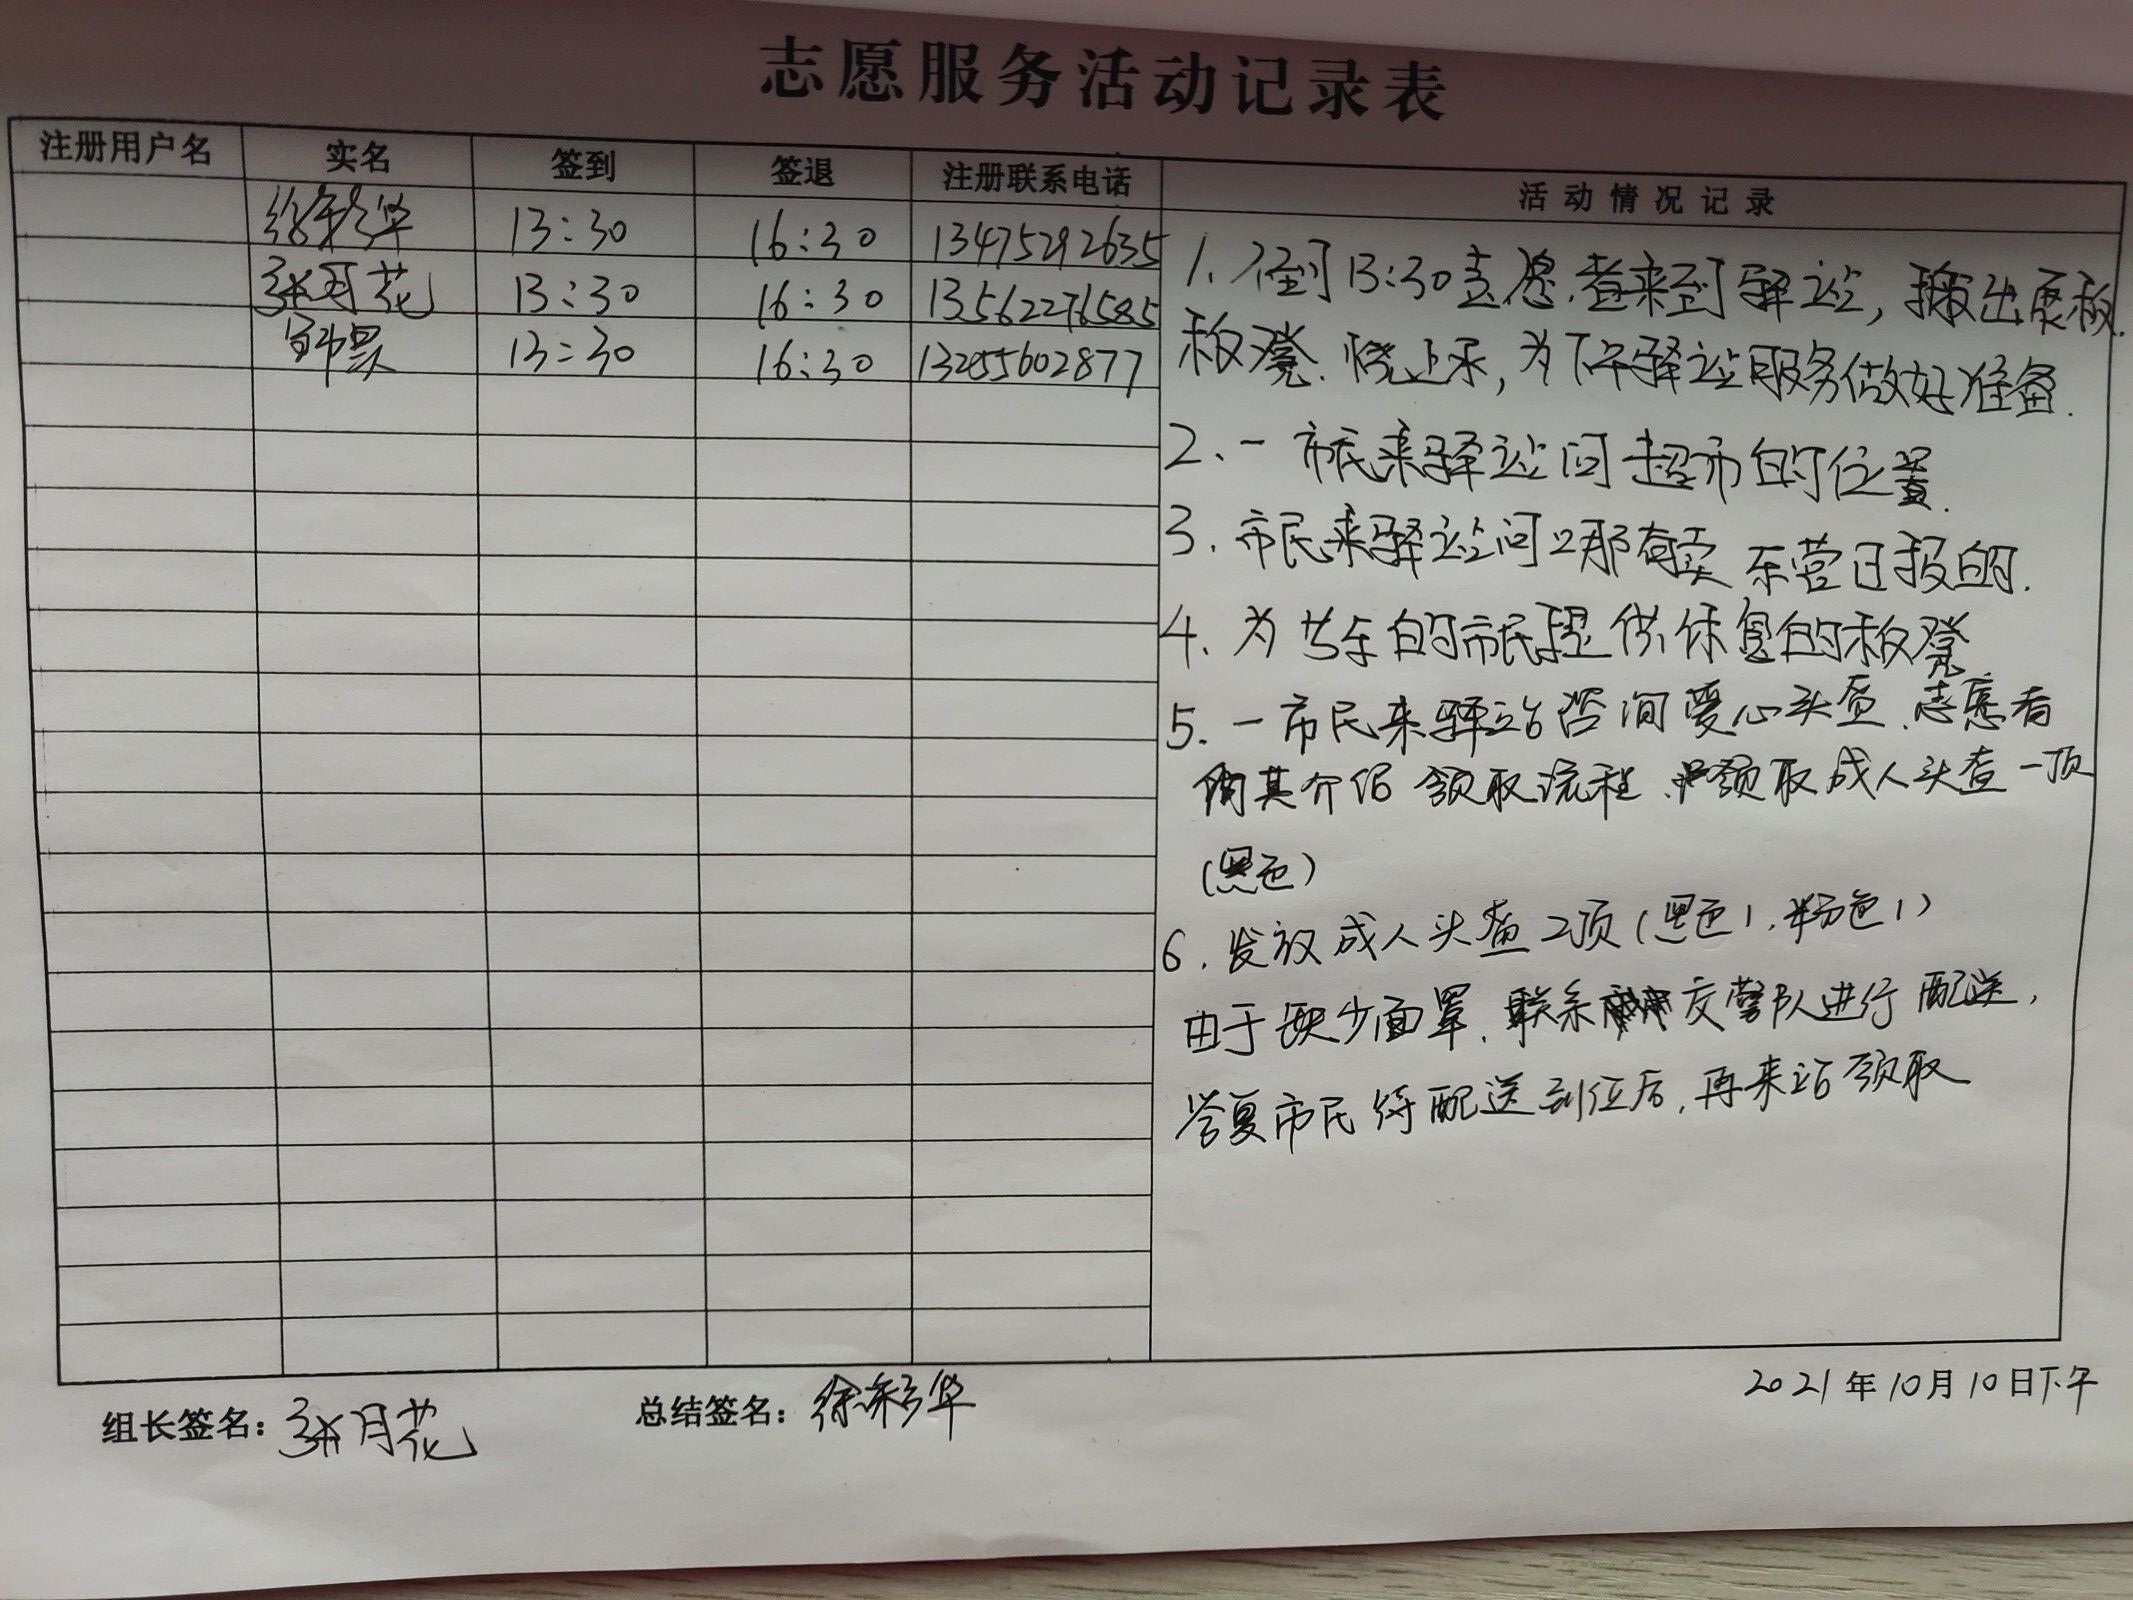 志愿服务活动记录表
注册用户名 实名 签到 签退 注册联系电话 活动情况记录
徐彩华 13:30 16:30 13475292635
张月花 13:30 16:30 13562276585
13:30 16:30 13255602877
1. 13:30志愿者来到驿站，搬出展板.
板凳.烧上水，为下午驿站服务做好准备.
2、一市民来驿站问超市的位置.
3.市民来驿站问哪有卖东营日报的.
4.为等车的市民提供休息的板凳
5.一市民来驿站咨询爱心头盔.志愿者
向其介绍领取流程.领取成人头盔一顶
(黑色)
6.发放成人头盔2顶(黑色1.粉色1)
由于缺少面罩.联系交警队进行配送，
答复市民待配送到位后,再来站领取
2021年10月10日下午
组长签名：张月花 总结签名：徐彩华